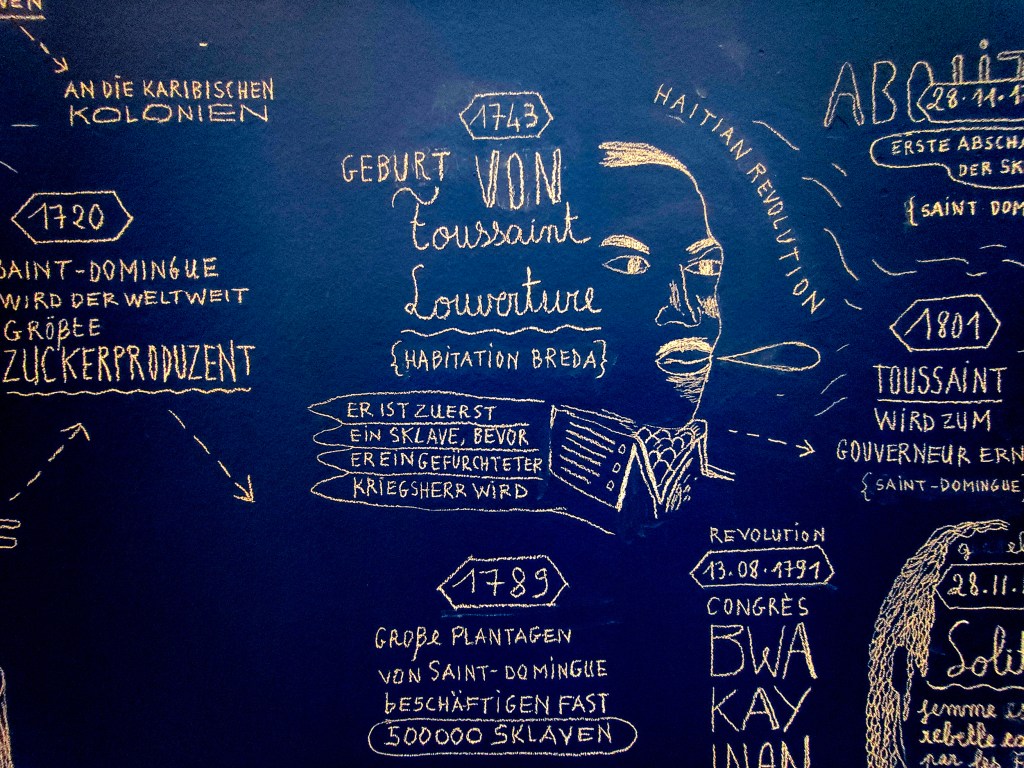 AN DIE KARIBISCHEN
KOLONIEN
1720
SAINT-DOMINGUE
WIRD DER WELTWEIT
GRÖßTE
ZUCKERPRODUZENT
1743
GEBURT VON
Toussaint
Louverture
{HABITATION BREDA}
ER IST ZUERST
EIN SKLAVE, BEVOR
ER EIN GEFÜRCHTETER
KRIEGSHERR WIRD
HAITIAN REVOLUTION
1789
GROßE PLANTAGEN
VON SAINT-DOMINGUE
BESCHÄFTIGEN FAST
500000 SKLAVEN
REVOLUTION
13.08.1791
CONGRÈS
BWA
KAY
ABOLIT
28.11.1
ERSTE ABSCHA
DER SK
{SAINT DOM
1801
TOUSSAINT
WIRD ZUM
GOUVERNEUR ERN
{SAINT-DOMINGUE
28.11.
Solit
femme es
rebelle
par les F